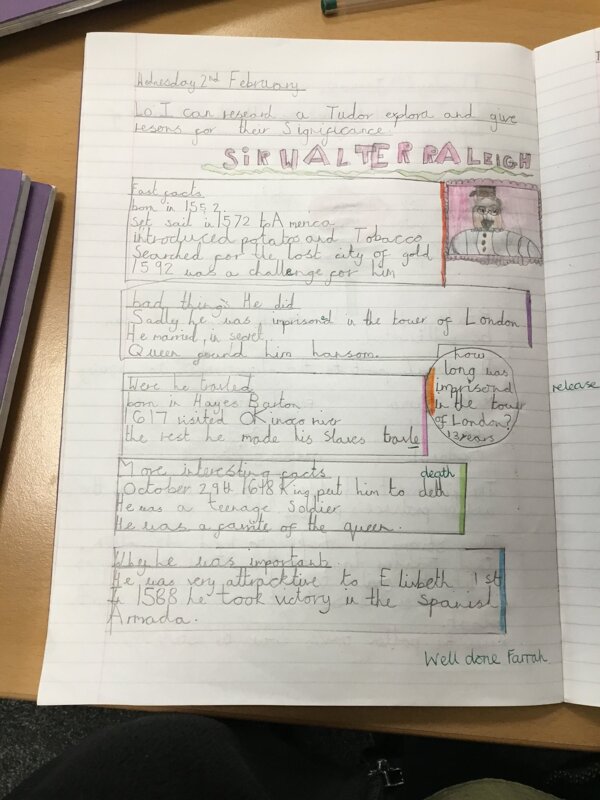 Wednesday 2nd February
Lo I can reserd a Tudor explora and give
resons for their Significance.
SiR WALTER RALEIGH
Fast facts
born in 1552.
set sail in 1572 to America
introduced potatos and Tobacco
Searched for the lost city of gold
1592 was a challenge for him
bad things He did
Sadly he was imprisond in the tower of London
He married in secret.
Queen found him hansom.
how
long was
imprisond
in the tower
of London?
13 years
release
Were he traled
born in Hayes Barton
1617 visited river
the rest he made his slaves travle
More interesting facts
death
October 29th 1618 King put him to deth
He was a teenage Soldier.
He was a of the queen.
Why he was important.
He was very attracktive to Elisbeth 1st
In 1588 he took victory in the Spanish
Armada.
Well done Farrah